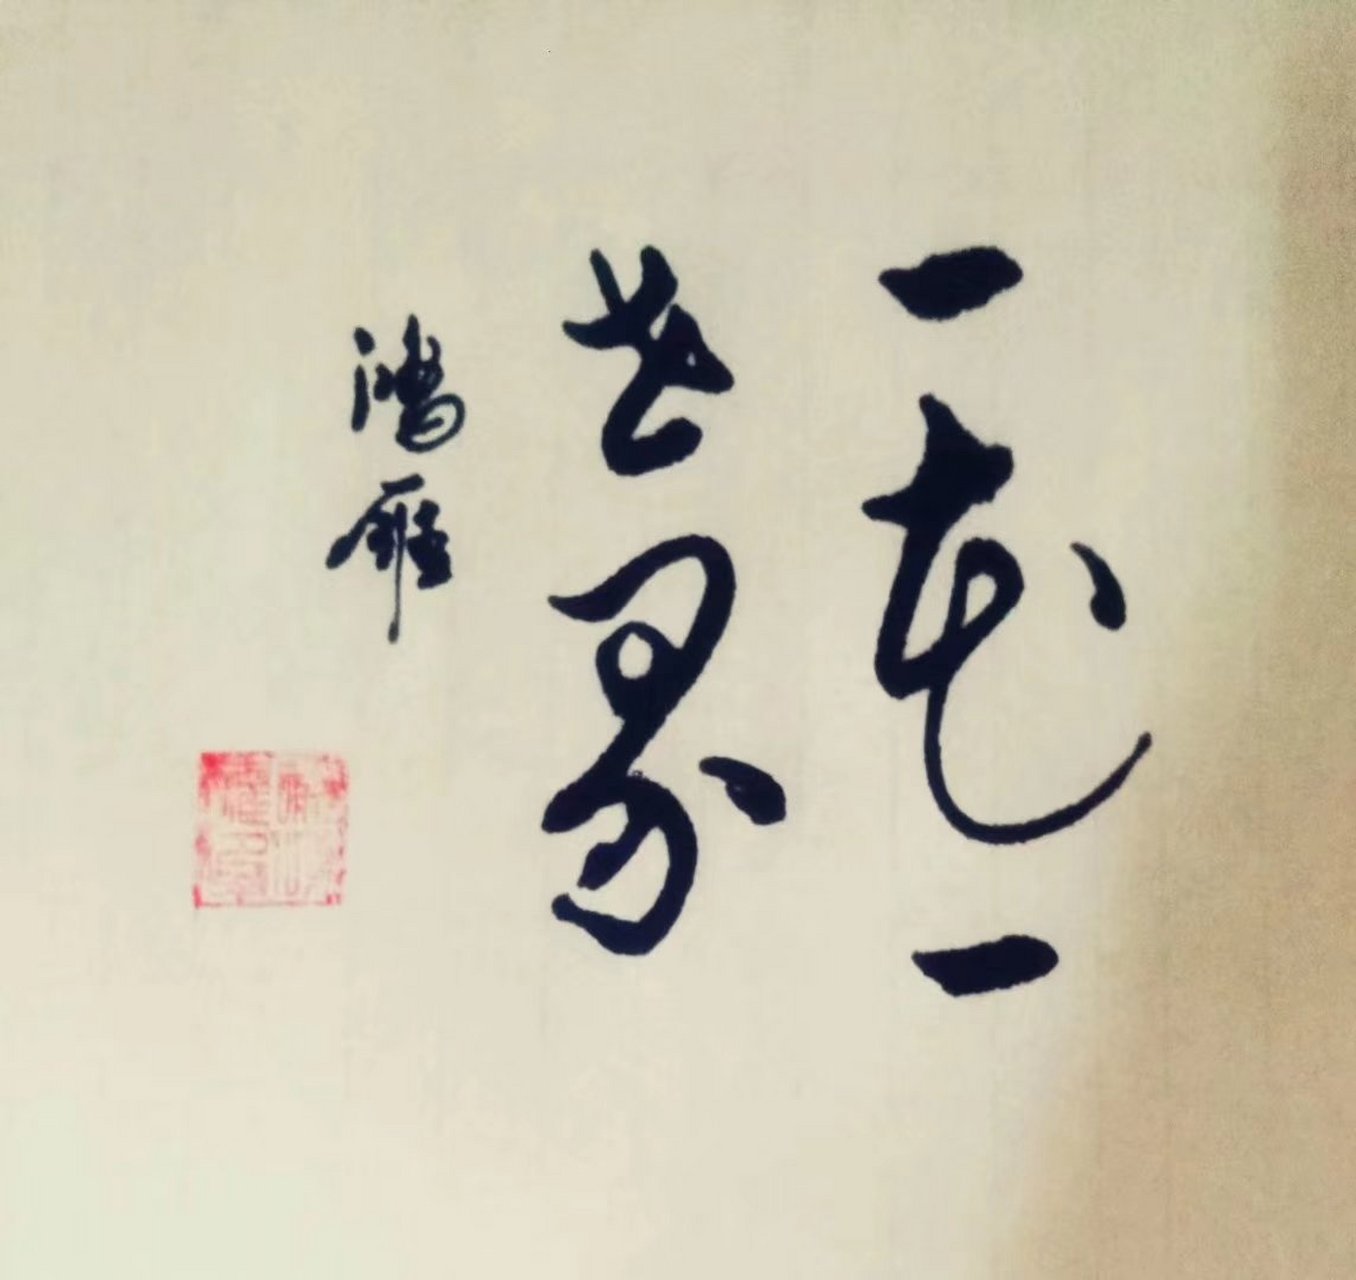 一花一
世界
鸿雁